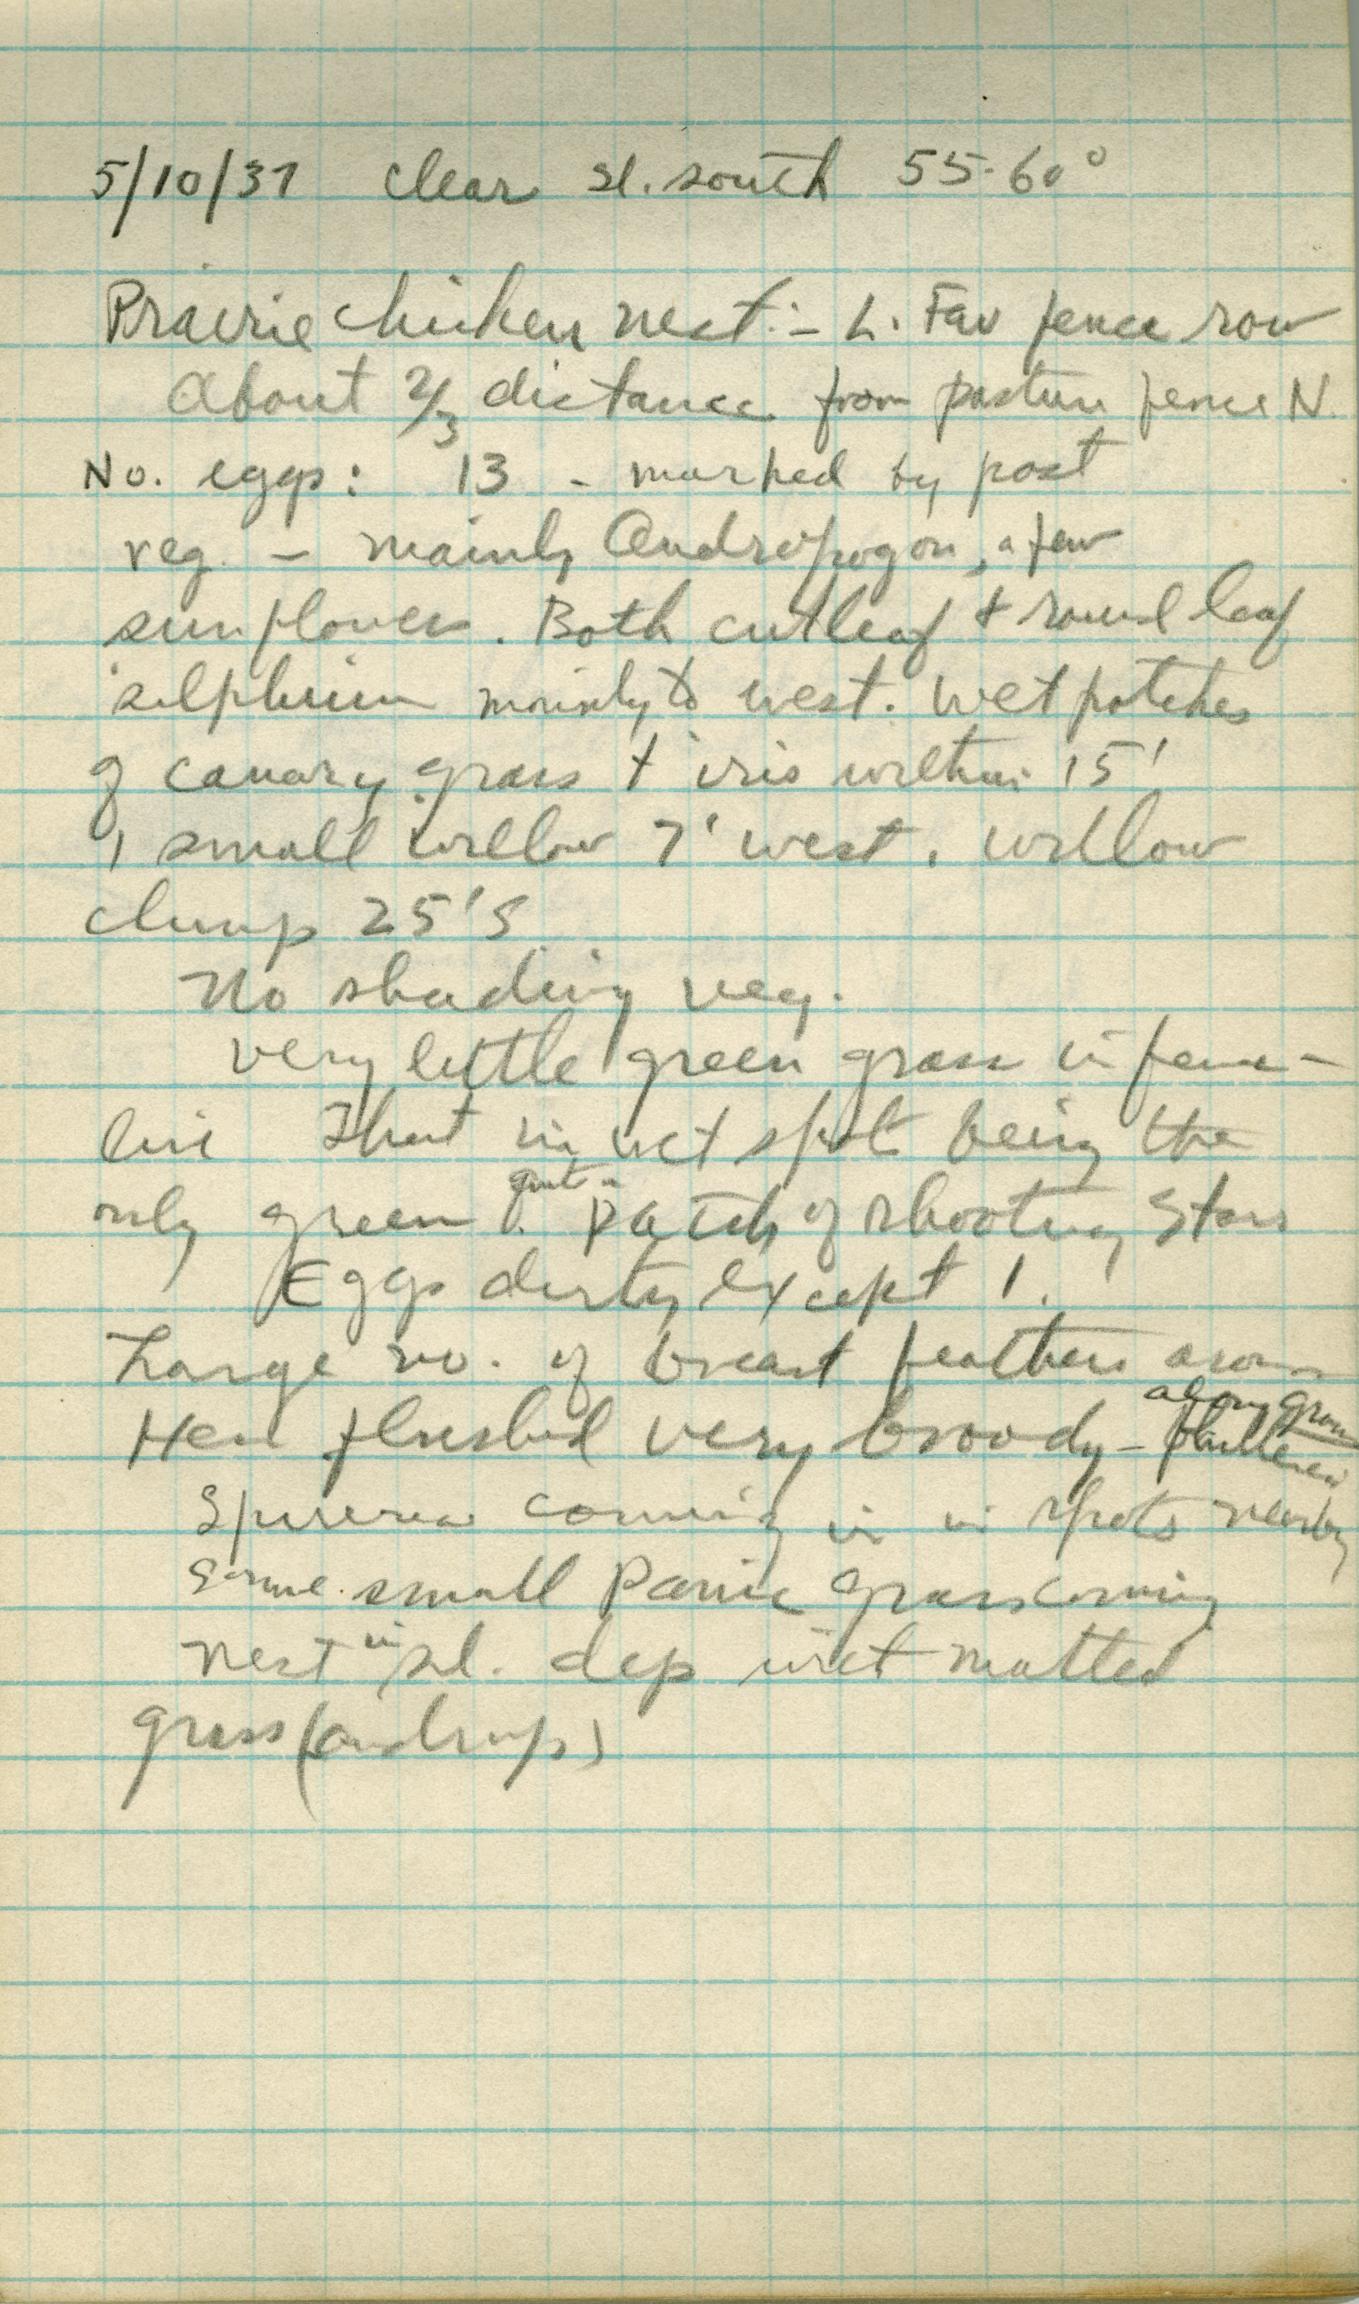 5/10/37 clear sl. south 55-60°
Prairie chicken nest:- L. Fav fence row
About 2/3 distance from pasture fence N.
No. eggs: 13 - marked by post
veg. - mainly Andropogon, a few
sunflowers. Both cutleaf + round leaf
silphium mainly to west. Wet patches
of canary grass + iris within 15'
1 small willow 7' west. willow
clump 25' S
No shading veg.
very little green grass in fence-
line That in wet spot being the
only green. Patch of shooting stars
Eggs dirty except 1.
Large no. of breast feathers
along ground
Hen flushed very broody - fluttered
Spirea coming in in spots nearby
Some small Panic grass coming
nest in sl. dep wet matted
grass (androp)